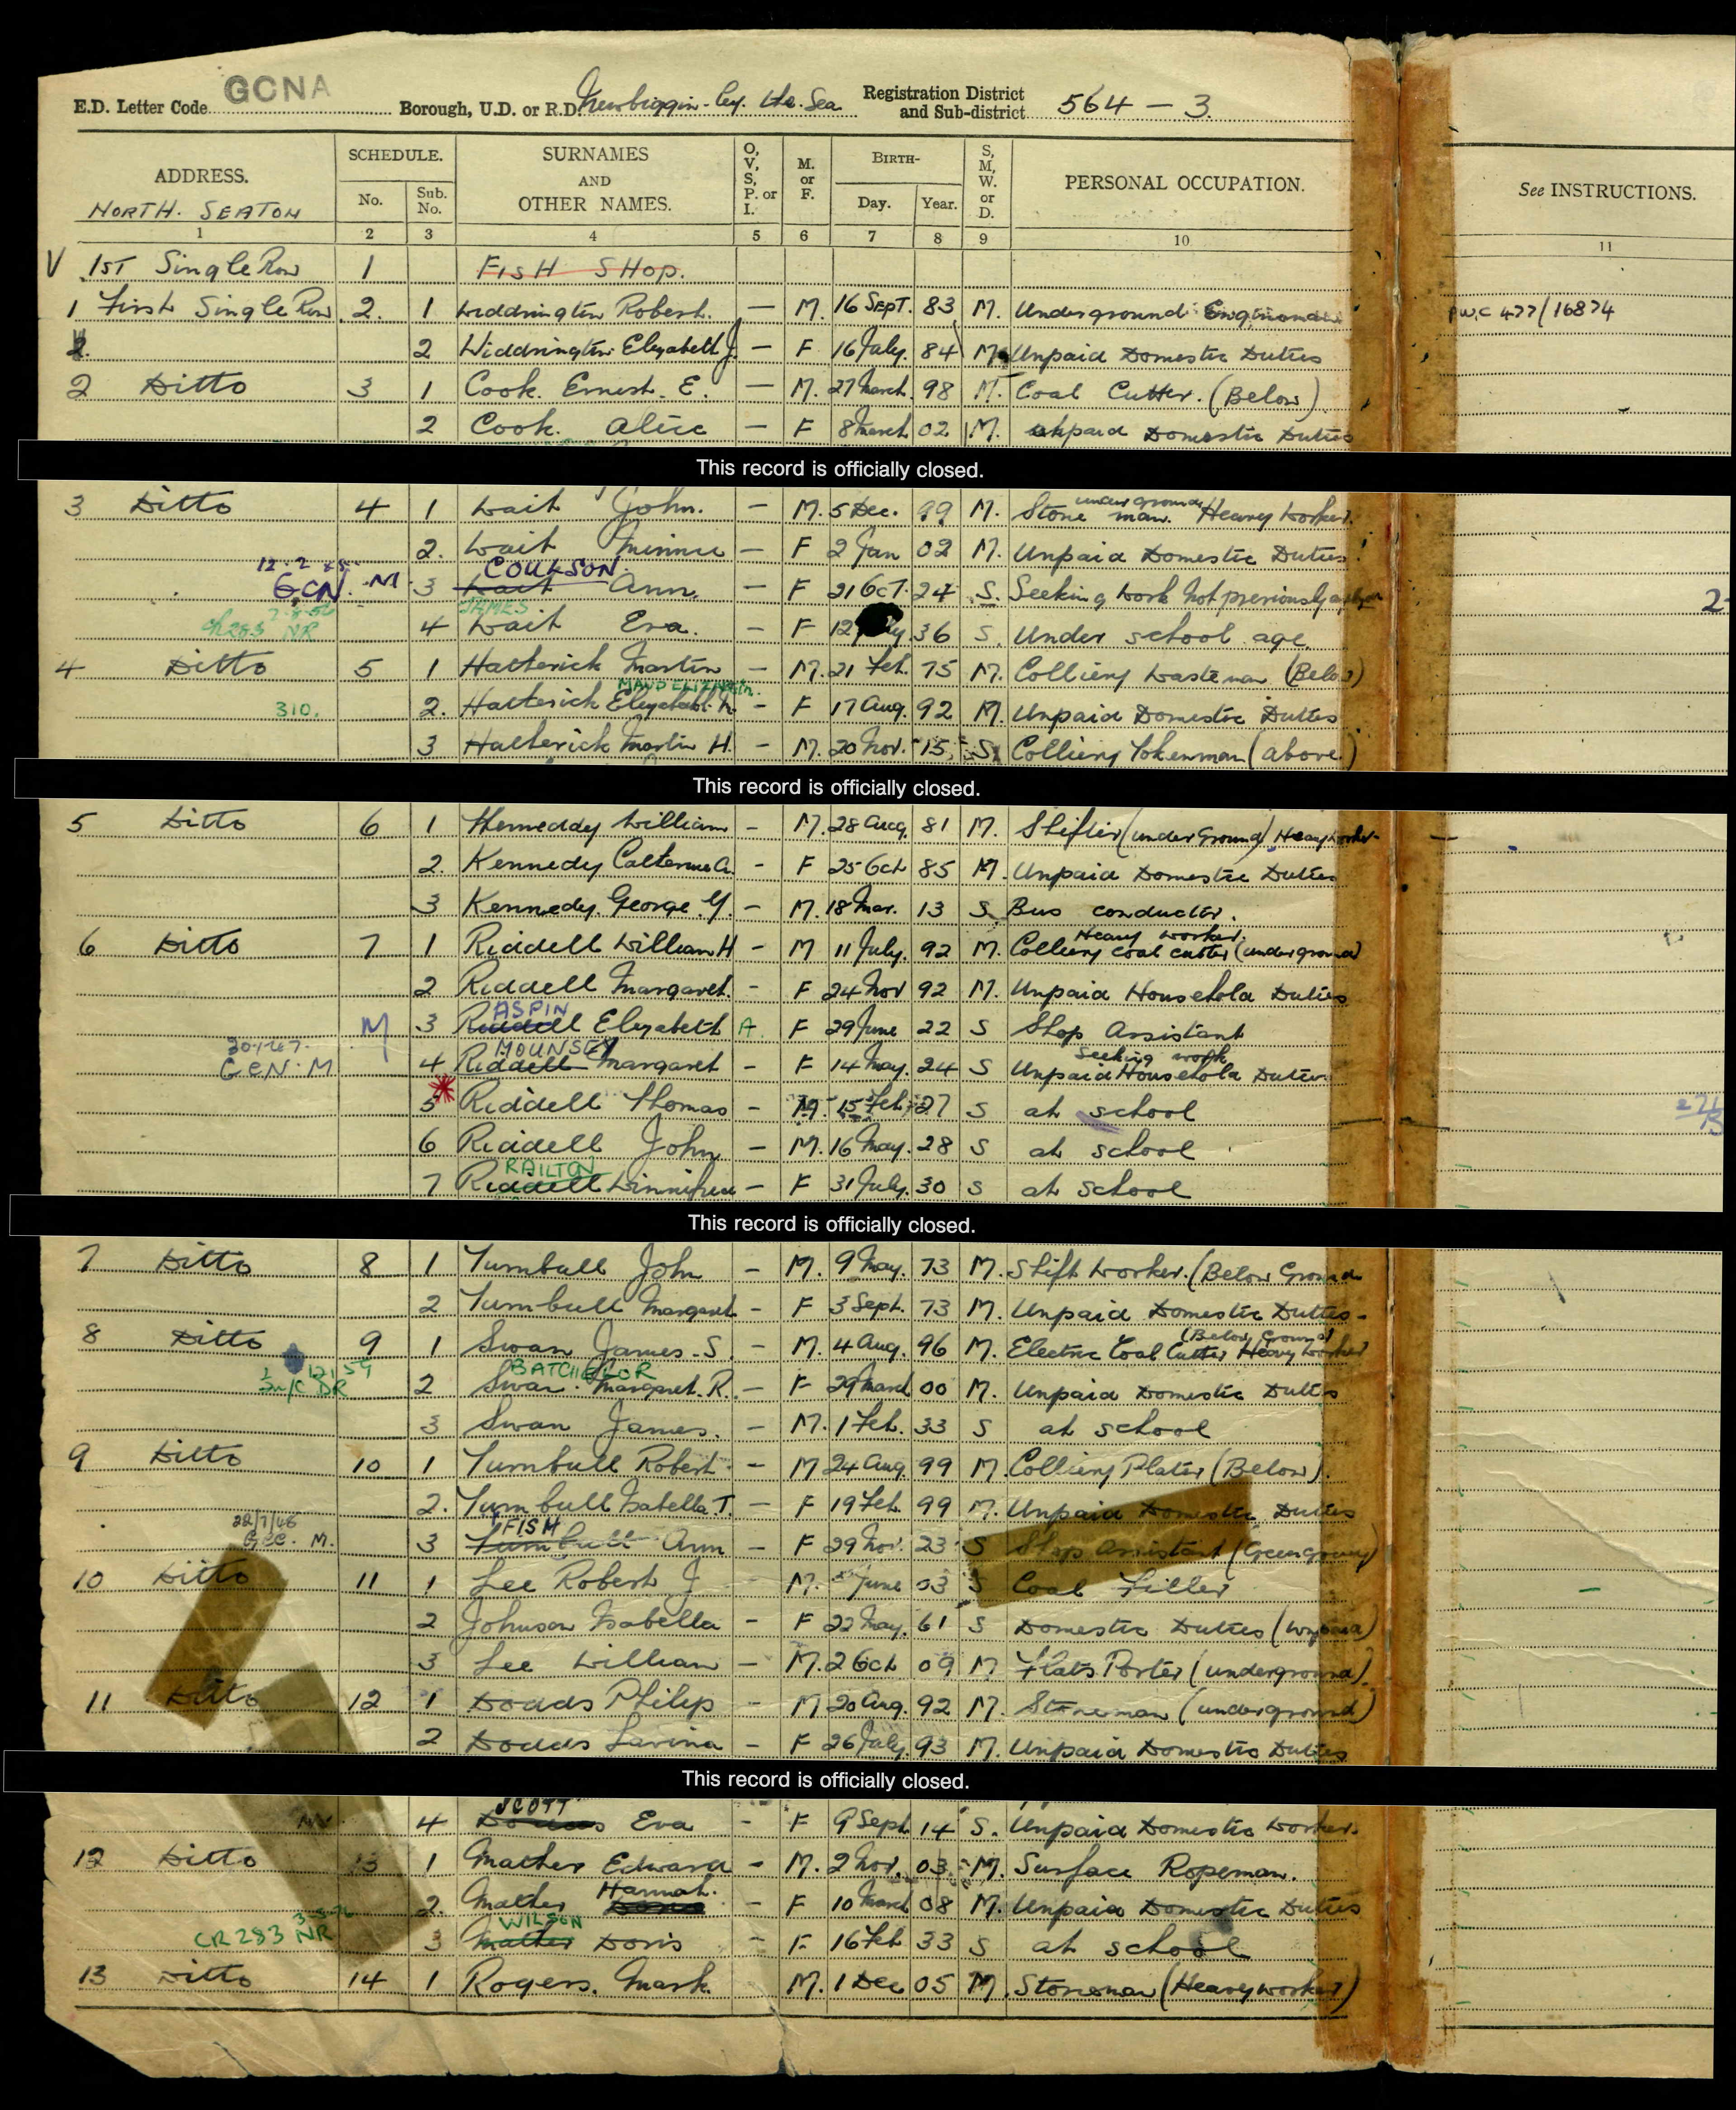 GCNA
E.D. Letter Code Borough, U.D. or R.D. Newbiggin-by-the-Sea Registration District and Sub-district 564 - 3.
ADDRESS. SCHEDULE. SURNAMES AND OTHER NAMES. O, V, S, P. or I. M. or F. BIRTH- S, M, W. or D. PERSONAL OCCUPATION. See INSTRUCTIONS.
NORTH. SEATON No. Sub. No. Day. Year.
1 2 3 4 5 6 7 8 9 10 11
V 1ST Single Row 1 FISH SHOP.
1 First Single Row 2. 1 Widdrington Robert. — M. 16 SEPT. 83 M. Underground Engineman P.W.C 477/16874
2 Widdrington Elizabeth J. — F 16 July. 84 M. Unpaid Domestic Duties
2 Ditto 3 1 Cook. Ernest. E. — M. 27 March. 98 M. Coal Cutter. (Below)
2 Cook. Alice — F 8 March 02 M. Unpaid Domestic Duties
This record is officially closed.
3 Ditto 4 1 Wait John. — M. 5 Dec. 99 M. Stone man. underground Heavy Worker.
2. Wait Minnie — F 2 Jan 02 M. Unpaid Domestic Duties.
12.2.45 GCN. M. 3 Wait COULSON. Ann. — F 21 Oct. 24 S. Seeking Work Not previously 2
CR283 NR 4 Wait JAMES Eva. — F 12 36 S. Under school age.
4 Ditto 5 1 Hatterick Martin — M. 21 Feb. 75 M. Colliery Wasteman (Below)
310. 2. Hatterick Elizabeth M. MAUD ELIZABETH. - F 17 Aug. 92 M. Unpaid Domestic Duties
3 Hatterick Martin H. - M. 20 Nov. 15 S. Colliery Tokenman (above.)
This record is officially closed.
5 Ditto 6 1 Kenneddy William - M. 28 Aug. 81 M. Shifter (underGround) Heavy Worker
2. Kennedy Catherine A. - F 25 Oct 85 M. Unpaid Domestic Duties
3 Kennedy. George. Y. - M. 18 Mar. 13 S. Bus conductor.
6 Ditto 7 1 Riddell William H - M 11 July. 92 M. Colliery Coal cutter (underground) Heavy worker.
2 Riddell Margaret. - F 24 Nov 92 M. Unpaid Household Duties
M 3 Riddell ASPIN Elizabeth A. F 29 June 22 S Shop Assistant
30.1.47. GCN. M 4 Riddell MOUNSEY Margaret - F 14 May. 24 S Unpaid Household Duties seeking work
5 Riddell Thomas - M. 15 Feb 27 S at school
6 Riddell John - M. 16 May. 28 S at school
7 Riddell RAILTON Winnifred - F 31 July. 30 S at school
This record is officially closed.
7 Ditto 8 1 Turnbull John - M. 9 May. 73 M. Shift Worker. (Below Ground
2 Turnbull Margaret - F 3 Sept. 73 M. Unpaid Domestic Duties-
8 Ditto 9 1 Swan James. S. - M. 4 Aug. 96 M. Electric Coal Cutter (Below Ground) Heavy Worker
DR 2 Swan. BATCHELOR Margaret. R. - F 29 March 00 M. Unpaid Domestic Duties
3 Swan James. - M. 1 Feb. 33 S at school
9 Ditto 10 1 Turnbull Robert - M 24 Aug. 99 M. Colliery Plater (Below).
2. Turnbull Isabella T. - F 19 Feb. 99 M. Unpaid Domestic Duties
22/7/46 M. 3 Turnbull FISH Ann - F 29 Nov. 23 S Shop Assistant (Greengrocery)
10 Ditto 11 1 Lee Robert J - M. June 03 S Coal Filler
2 Johnson Isabella - F 22 May. 61 S Domestic Duties (Unpaid)
3 Lee William - M. 2 Oct 09 M Flats Porter (underground).
11 Ditto 12 1 Dodds Philip - M 20 Aug. 92 M. Stoneman (underground)
2 Dodds Lavina - F 26 July. 93 M. Unpaid Domestic Duties
This record is officially closed.
4 Dodds SCOTT Eva - F 9 Sept 14 S. Unpaid Domestic Worker.
12 Ditto 13 1 Mather Edward - M. 2 Nov. 03 M. Surface Ropeman.
2. Mather Hannah. - F 10 March 08 M. Unpaid Domestic Duties
CR 283 NR 3 Mather WILSON Doris - F. 16 Feb 33 S at school
13 Ditto 14 1 Rogers. Mark. M. 1 Dec 05 M. Stoneman (Heavyworker)